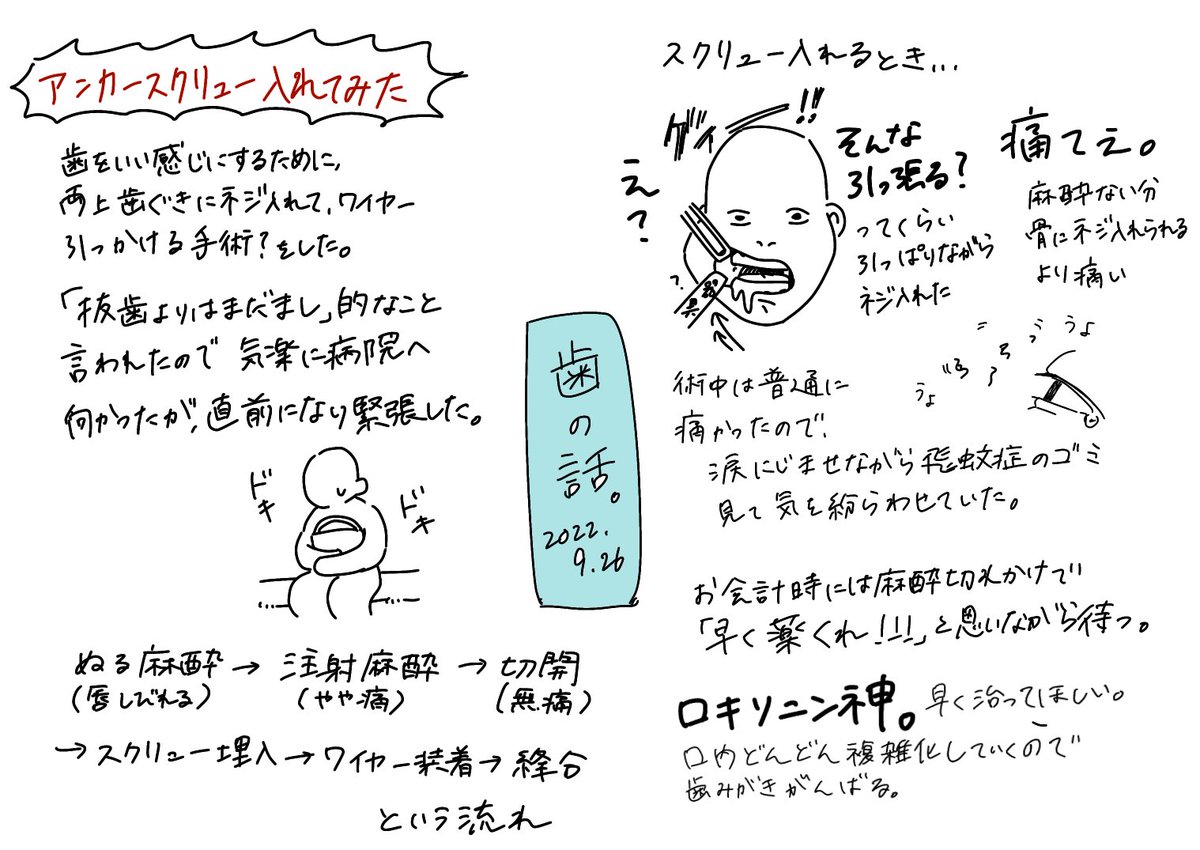 アンカースクリュー入れてみた
歯をいい感じにするために、
両上歯ぐきにネジ入れて、ワイヤー
引っかける手術?をした。
「抜歯よりはまだまし」的なこと
言われたので 気楽に病院へ
向かったが、直前になり緊張した。
ドキ
ドキ
ぬる麻酔→注射麻酔→切開
(唇しびれる) (やや痛) (無痛)
→スクリュー埋入→ワイヤー装着→縫合
という流れ
歯の話。
2022.
9.26
スクリュー入れるとき...
グイー!!
え?
そんな
引っ張る?
ってくらい
引っぱりながら
ネジ入れた
痛てえ。
麻酔ない分
骨にネジ入れられる
より痛い
うよ
うよ
術中は普通に
痛かったので、
涙にじませながら飛蚊症のゴミ
見て気を紛らわせていた。
お会計時には麻酔切れかけで
「早く薬くれ!!!」と思いながら待つ。
ロキソニン神。早く治ってほしい。
口内どんどん複雑化していくので
歯みがきがんばる。